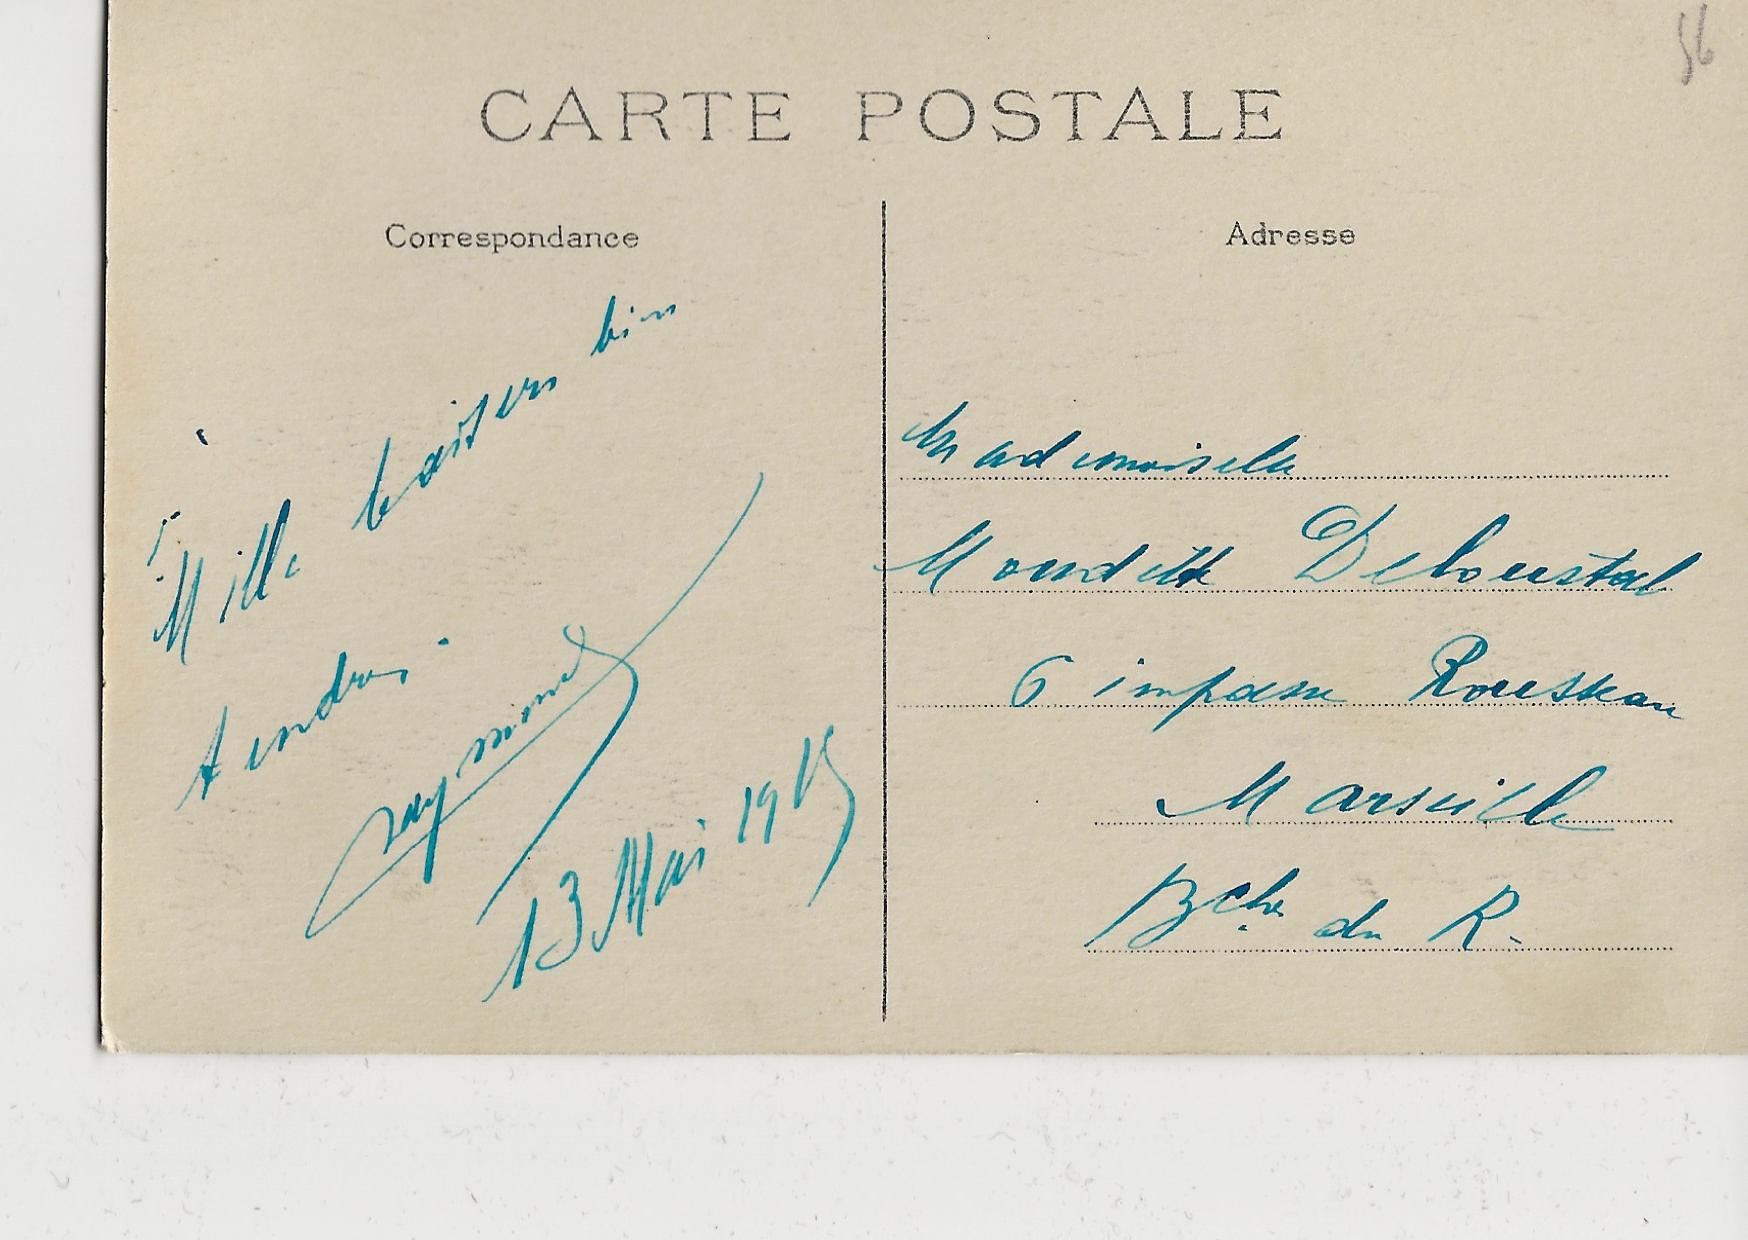 56
CARTE POSTALE
Correspondance
Mille baisers bien
tendres.
Raymond
13 Mai 1915
Adresse
Mademoiselle
Deloustal
6 impasse Rousseau
Marseille
Bches du R.